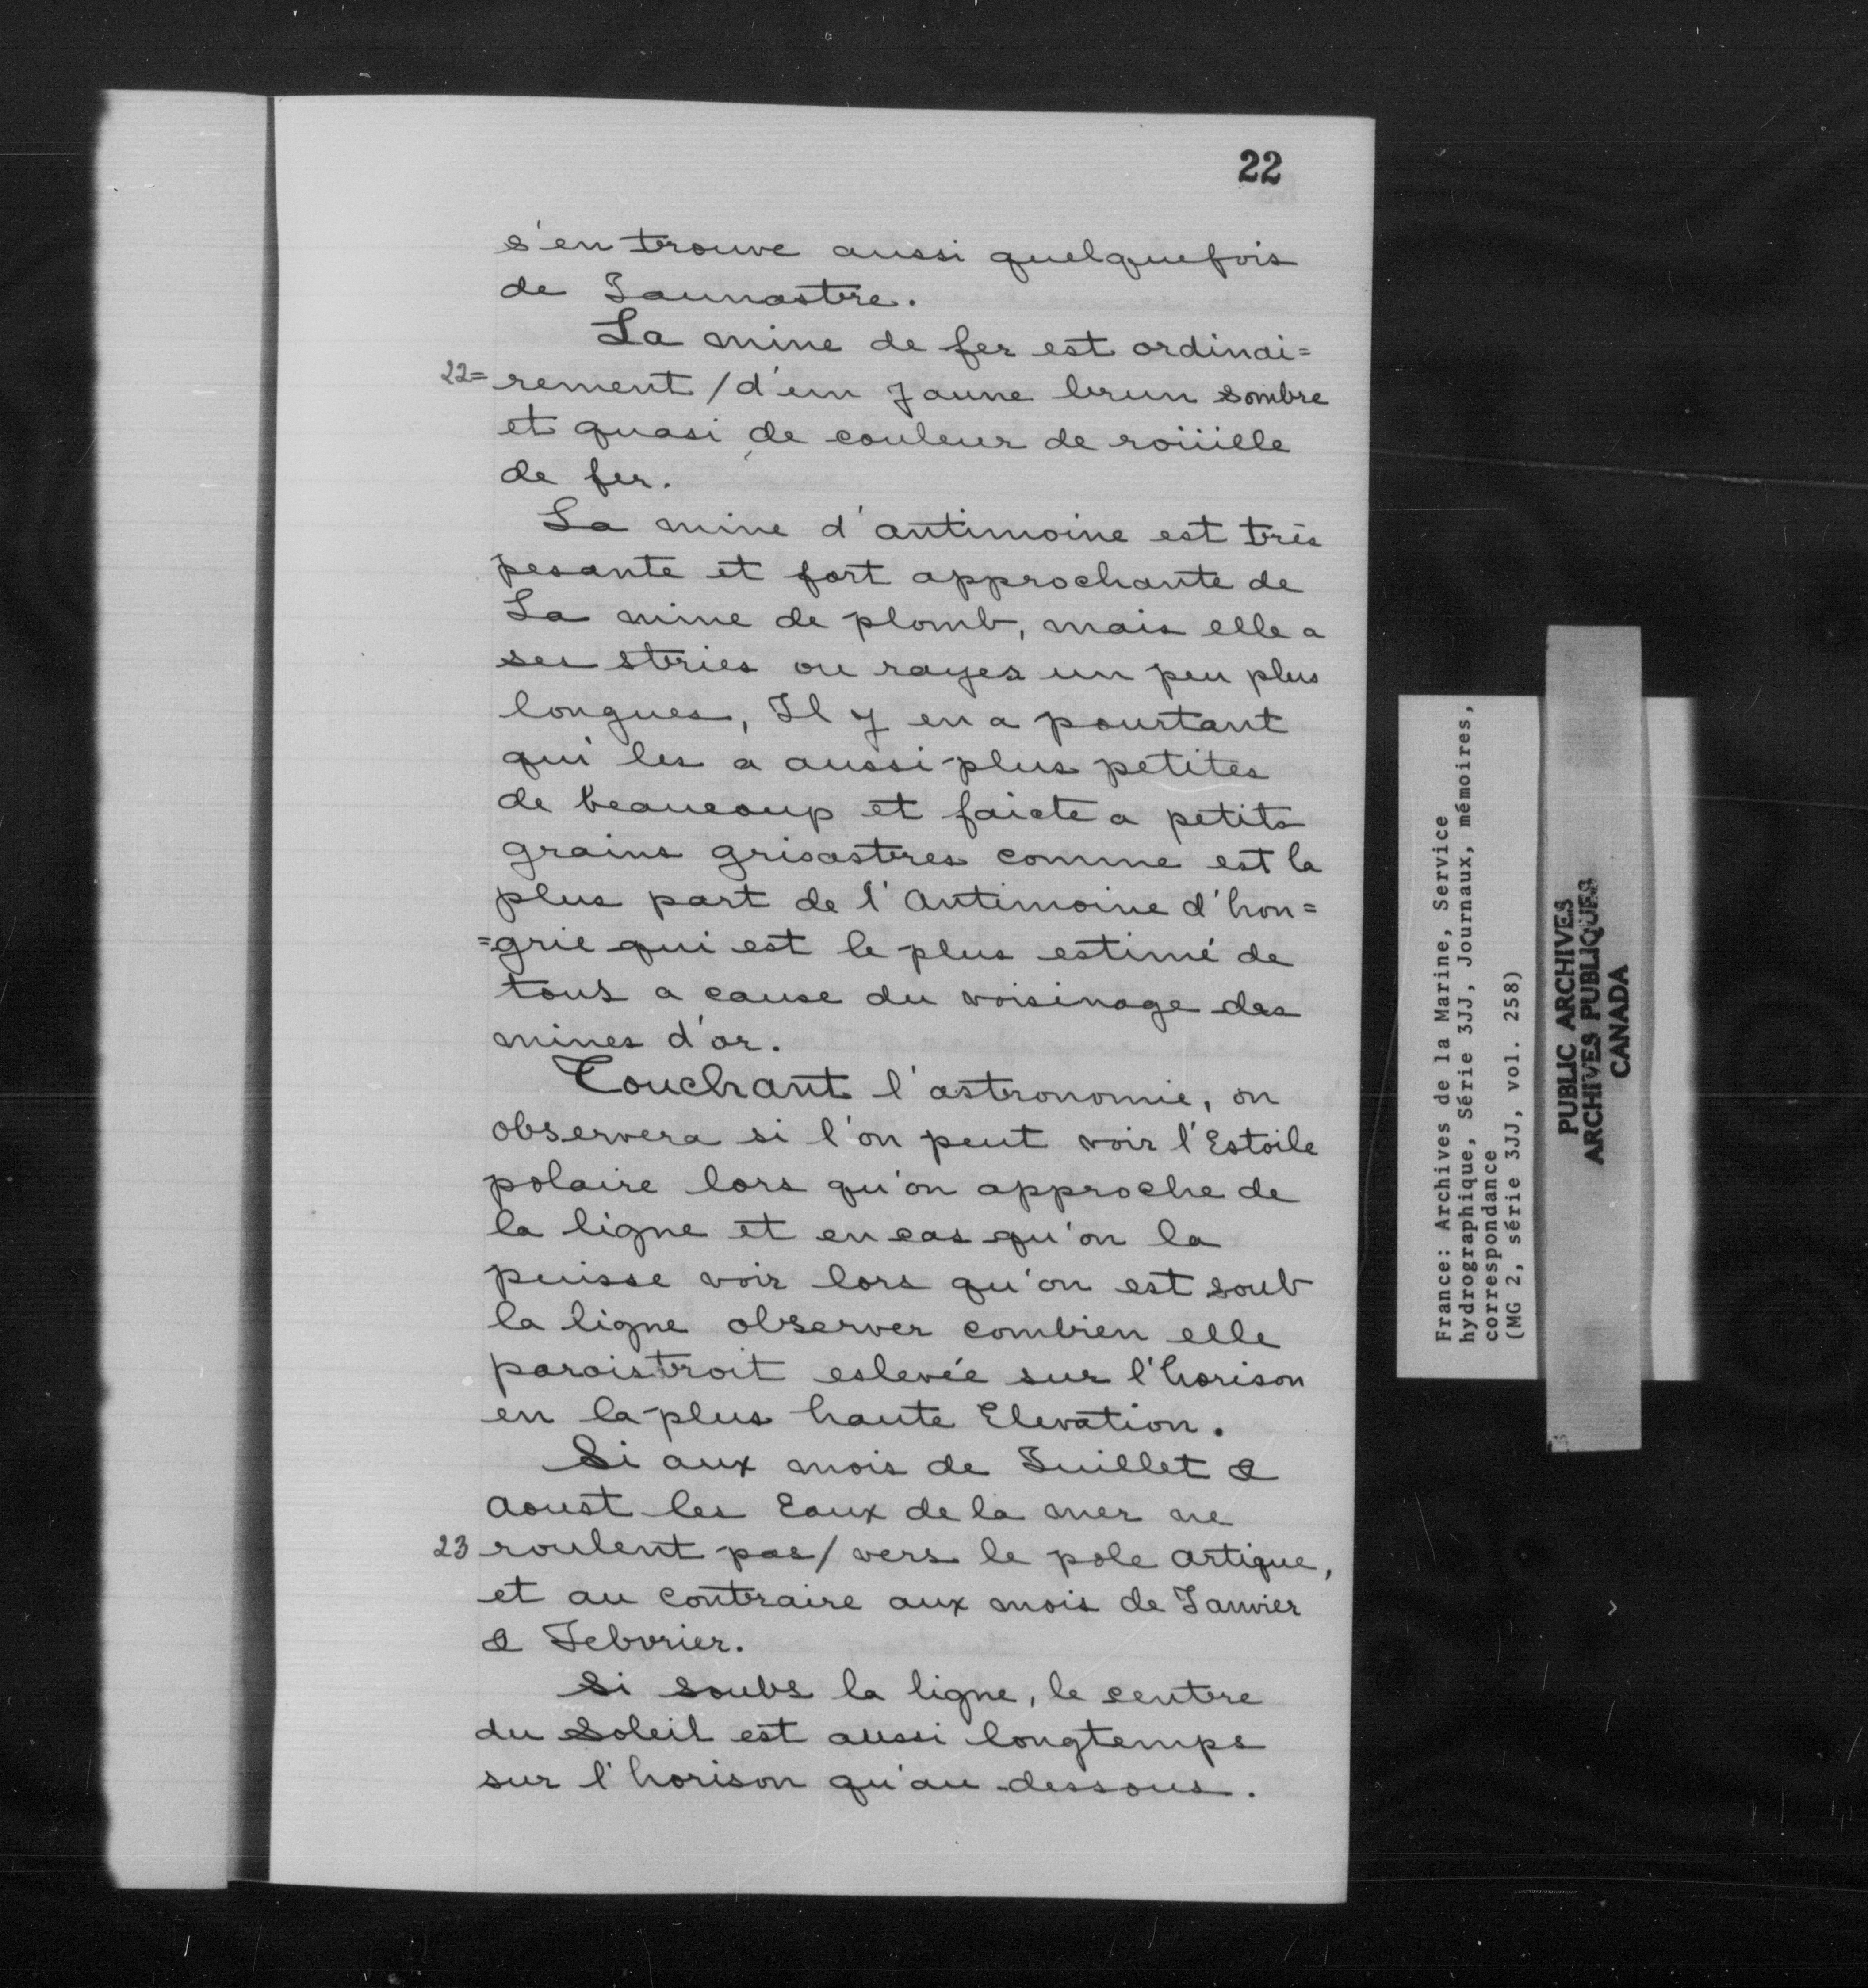 22
s'en trouve aussi quelquefois
de Jaunastre.
La mine de fer est ordinai=
22= rement / d'un Jaune brun sombre
et quasi de couleur de roüille
de fer.
La mine d'antimoine est très
pesante et fort approchante de
La mine de plomb, mais elle a
ses stries ou rayes un peu plus
longues, Il y en a pourtant
qui les a aussi plus petites
de beaucoup et faicte a petits
grains grisastres comme est la
plus part de l'Antimoine d'hon=
=grie qui est le plus estimé de
tous a cause du voisinage des
mines d'or.
Touchant l'astronomie, on
observera si l'on peut voir l'Estoile
polaire lors qu'on approche de
la ligne et en cas qu'on la
puisse voir lors qu'on est soub
la ligne observer combien elle
paroistroit eslevée sur l'horison
en la plus haute Elevation.
Si aux mois de Juillet &
Aoust les Eaux de la mer ne
23 roulent pas / vers le pole artique,
et au contraire aux mois de Janvier
& Febvrier.
Si soubs la ligne, le centre
du Soleil est aussi longtemps
sur l'horison qu'au dessous.
France: Archives de la Marine, Service
hydrographique, Série 3JJ, Journaux, mémoires,
correspondance
(MG 2, série 3JJ, vol. 258)
PUBLIC ARCHIVES
ARCHIVES PUBLIQUES
CANADA